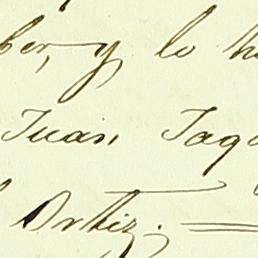 ber, y lo
Juan, Tag
Ortiz.